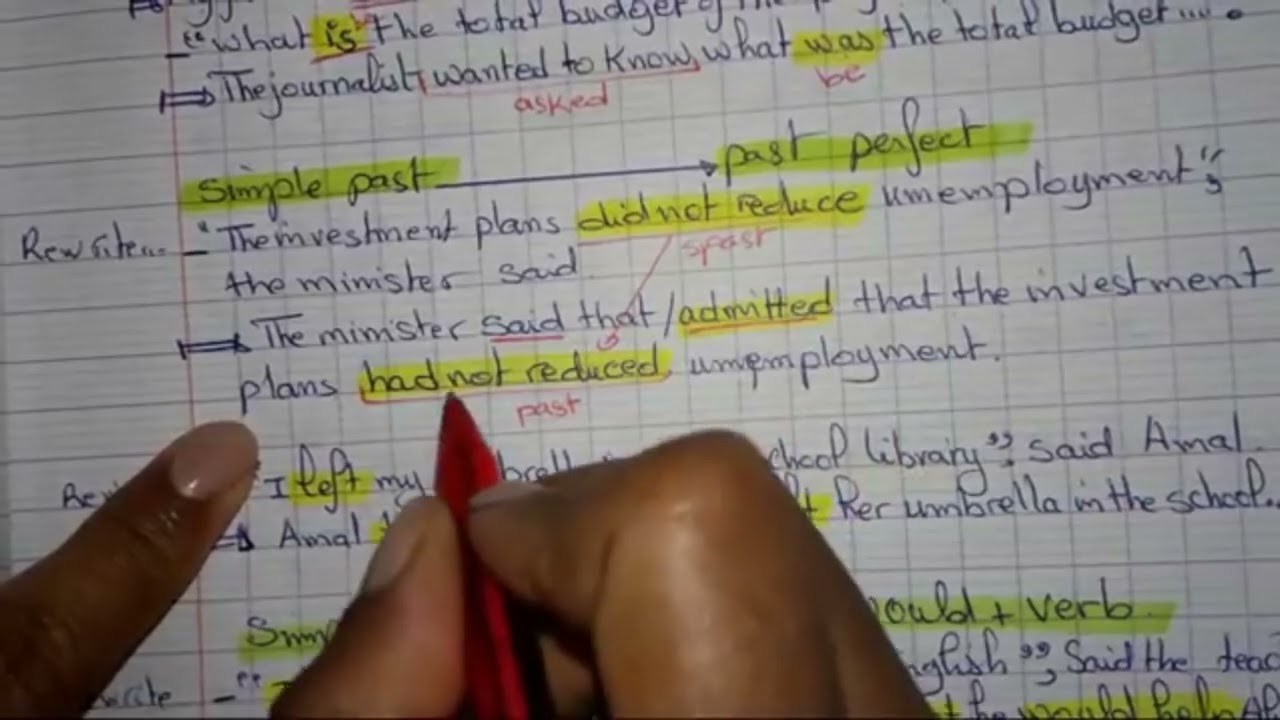 "what is the total budget of the
⟹ The journalist wanted to know, what was the total budget .... .
asked be
Simple past → past perfect
Rewrite... - "The investment plans did not reduce umemployment",
s past
the minister said.
⟹ The minister said that / admitted that the investment
plans had not reduced umemployment.
past
"I left my school library", said Amal.
⟹ Amal her umbrella in the school..
would + verb
English", Said the
he would help